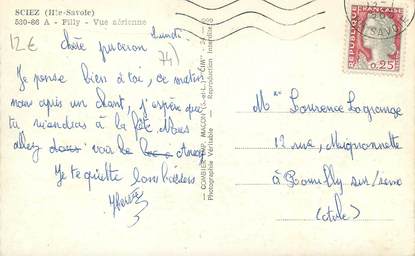 SCIEZ (Hte-Savoie)
530-86 A - Filly - Vue aérienne
12€
74)
Lundi
Chère
Je pense bien à toi, ce matin
nous après un chant, j'espère que
tu viendras à la fête. Vous
allez voir le
Je te quitte bons baisers
COMBIER IMP. MACON (S.-et-L.) "CIM"
Photographie Véritable - Reproduction Interdite
REPUBLIQUE FRANÇAISE
0,25
SAVOIE
Mlle Laurence Lagrange
12 rue, Mignonnette
à Romilly sur/seine
(Aube)